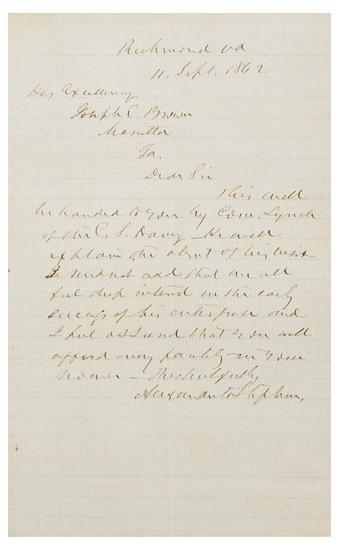 Richmond Va
11. Sept. 1862
His Excellency
Joseph E. Brown
Marietta
Ga.
Dear Sir
This will
be handed to you by Com. Lynch
of the C. S. Navy - He will
explain the object of his visit
I need not add that we all
feel deep interest in the early
success of his enterprise and
I feel assured that you will
afford every facility in your
power - Respectfully
Alexander H Stephens